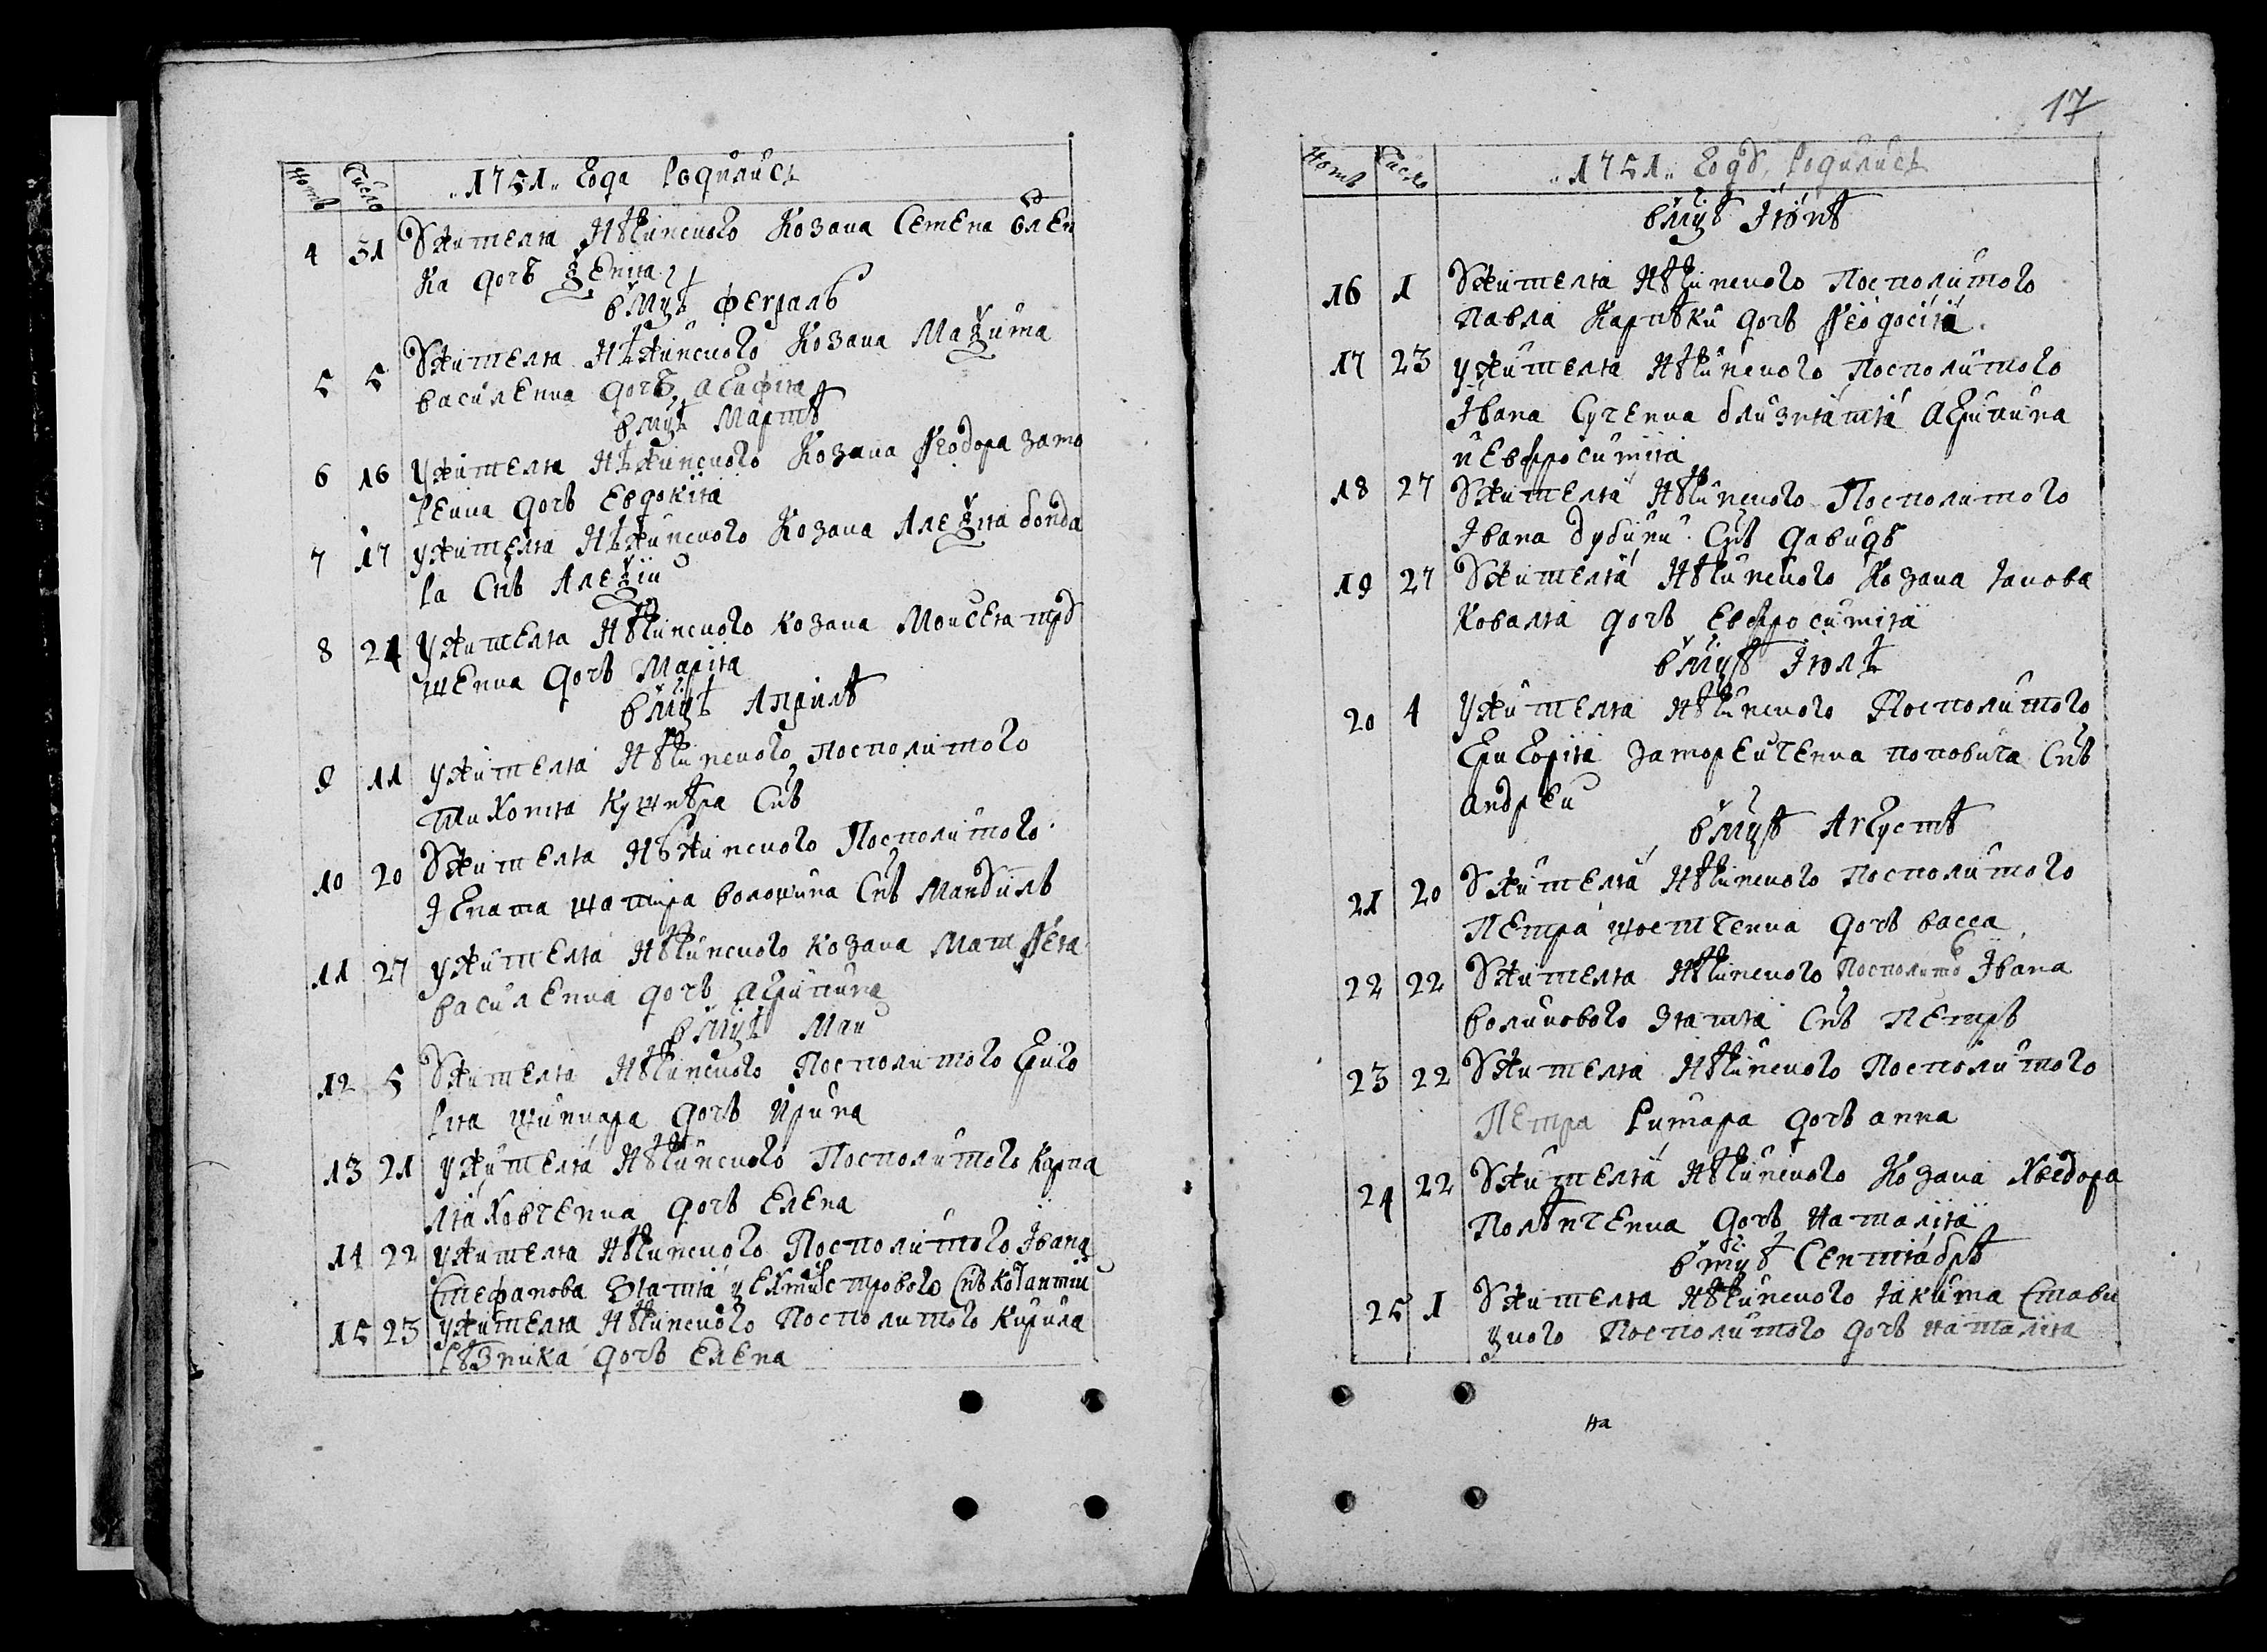 Номъ Число „1751„ года родились
4 31 Ужителя Нѣжинского Козака Семена
ка дочь Ѯенія
вмцѣ Февраль
5 5 Ужителя Нѣжинского Козака Маѯима
василенка дочь агафія
вмцѣ Мартъ
6 16 Ужителя Нѣжинского Козака Ѳеодора замо
ренка дочь Евдокія
7 17 ужителя Нѣжинского Козака Алеѯія бонда
ра Снъ Алеѯіи
8 24 Ужителя Нѣжинского козака Моисея трꙋ
шенка дочь Марія
вмцѣ Априлъ
9 11 ужителя Нѣжинского посполитого
тихона кушнѣра Снъ
10 20 Ужителя Нѣжинского Посполитого
Ігната шатира волошина Снъ Мануилъ
11 27 ужителя Нѣжинского козака Матѳея
василенка дочь агрипина
вмцѣ Маи
12 5 Ужителя Нѣжинского Посполитого григо
рія шинкара дочь ирина
13 21 ужителя Нѣжинского Посполитого карпа
ляховченка дочь Елена
14 22 ужителя Нѣжинского Посполитого Івана
Стефанова Зятя
15 23 ужителя Нѣжинского Посполитого Кирила
рѣзника дочь Елена
17
Номъ Число „1751„ годꙋ родились
вмцѣ Іюнъ
16 1 Ужителя Нѣжинского Посполитого
Павла Карпѣки дочь Ѳеодосія
17 23 ужителя Нѣжинского Посполитого
Івана Сученка близнята агрипина
иЕвфросимія
18 27 Ужителя Нѣжинского Посполитого
Івана дубини Снъ давидъ
19 27 Ужителя Нѣжинского Козака Іакова
Коваля дочь Евфросимія
вмцѣ Іюль
20 4 Ужителя Нѣжинского Посполитого
григорія поповича Снъ
андреи
вмцѣ Августъ
21 20 Ужителя Нѣжинского Посполитого
Петра шостченка дочь васса
22 22 Ужителя Нѣжинского Посполито Івана
воликового Зятя Снъ Петръ
23 22 Ужителя Нѣжинского Посполитого
Петра Римара дочь анна
24 22 Ужителя Нѣжинского Козака Хведора
дочь Наталія
вмцѣ Септябръ
25 1 Ужителя Нѣжинского Іакима Стави
цкого Посполитого дочь наталія
на